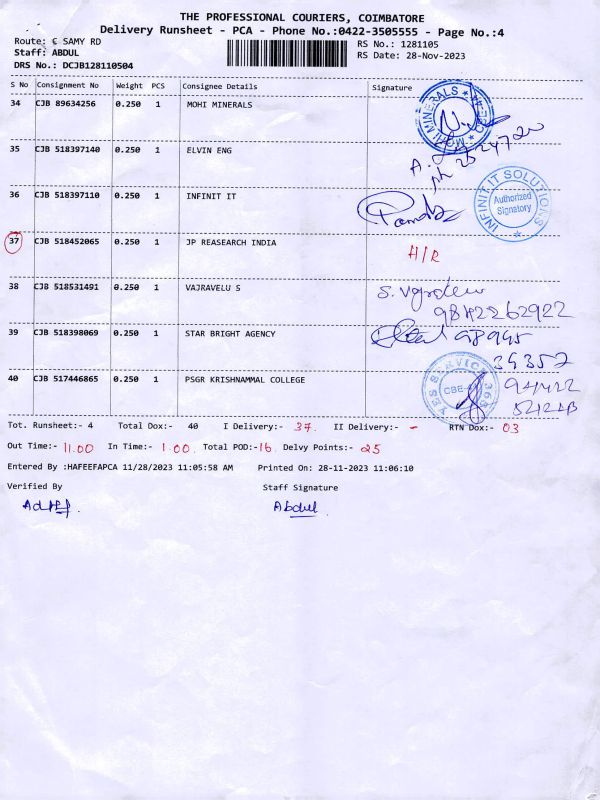 THE PROFESSIONAL COURIERS, COIMBATORE
Delivery Runsheet - PCA - Phone No.:0422-3505555 - Page No.:4
Route: C SAMY RD
RS No.: 1281105
Staff: ABDUL
RS Date: 28-Nov-2023
DRS No.: DCJB128110504
S No Consignment No Weight PCS Consignee Details Signature
34 CJB 89634256 0.250 1 MOHI MINERALS
MOHI MINERALS
35 CJB 518397140 0.250 1 ELVIN ENG
36 CJB 518397110 0.250 1 INFINIT IT
INFINIT IT SOLUTIONS
Authorized
Signatory
37 CJB 518452065 0.250 1 JP REASEARCH INDIA H/R
38 CJB 518531491 0.250 1 VAJRAVELU S
9842262922
39 CJB 518398069 0.250 1 STAR BRIGHT AGENCY 98945
39357
40 CJB 517446865 0.250 1 PSGR KRISHNAMMAL COLLEGE
YES SERVICE 363
CBE
94422
Tot. Runsheet:- 4 Total Dox:- 40 I Delivery:- 37. II Delivery:- - RTN Dox:- 03
Out Time:- 11.00 In Time:- 1.00. Total POD:-16 Delvy Points:- 25
Entered By :HAFEEFAPCA 11/28/2023 11:05:58 AM Printed On: 28-11-2023 11:06:10
Verified By Staff Signature
Abdul